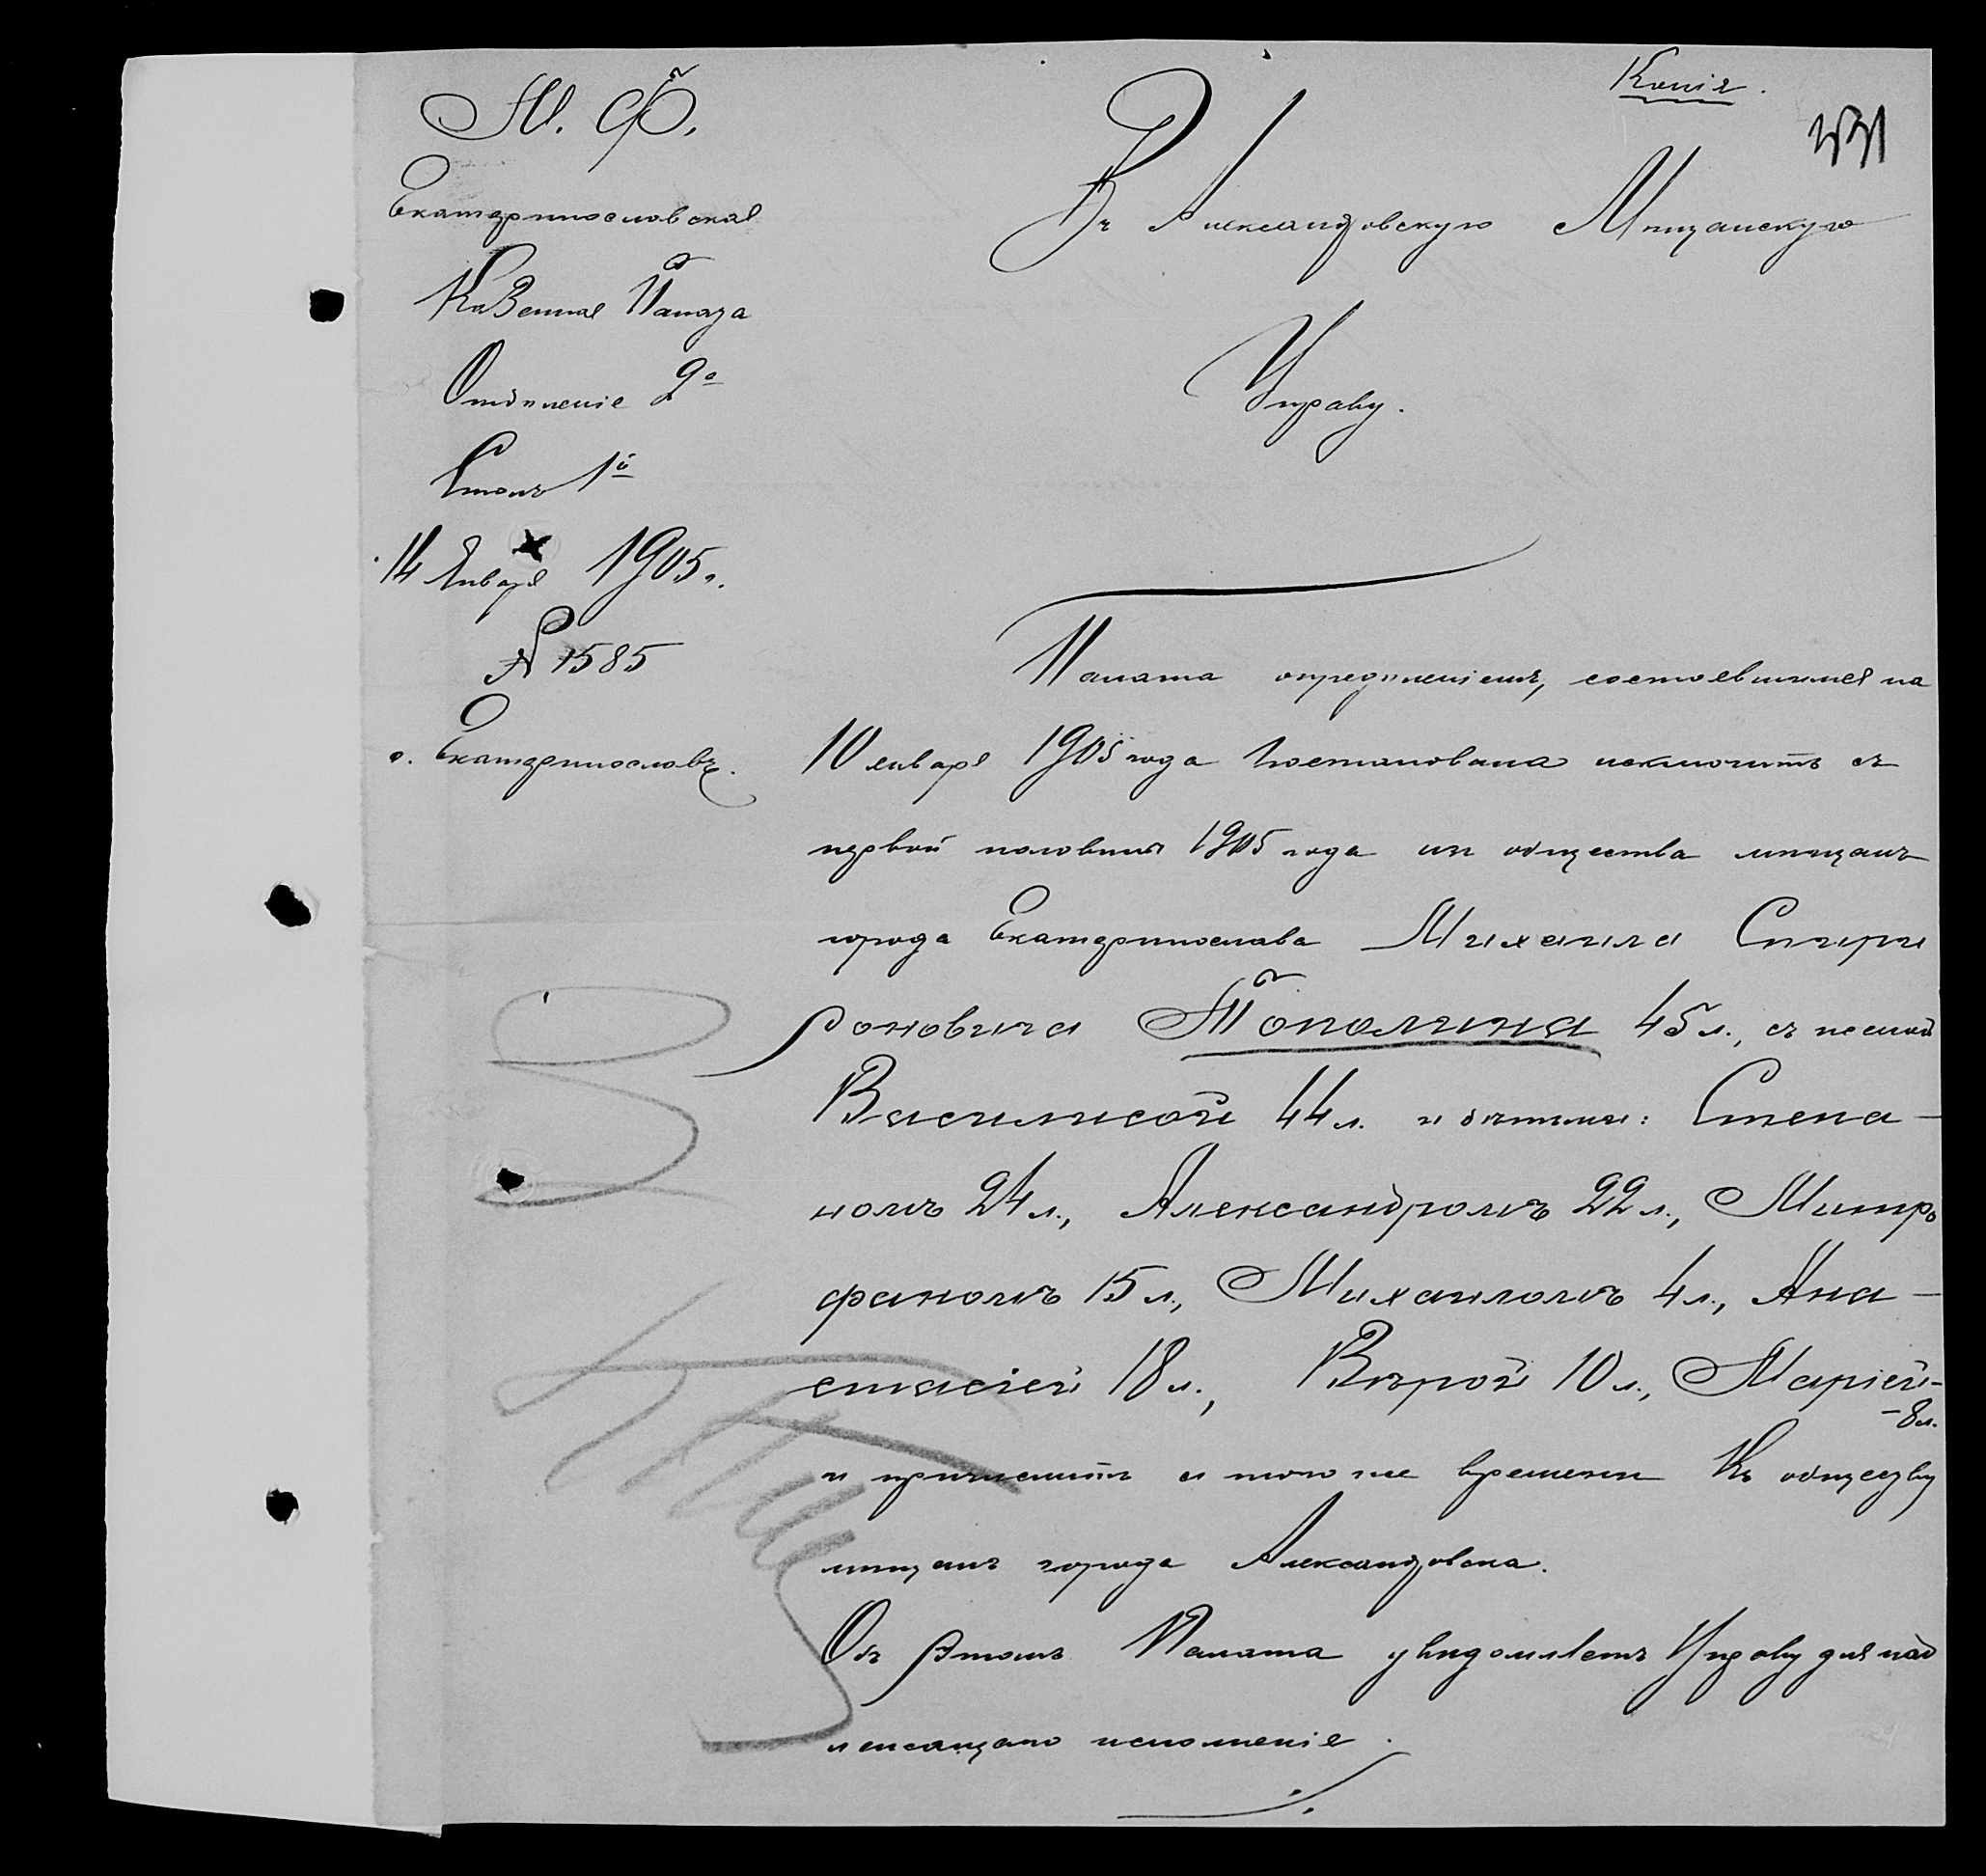 Копія.
М. Ф.
Екатеринославская
Казенная Палата
Отдѣленіе 2º
Столъ 1й
14 Января 1905 г.
№ 1585
г. Екатеринославъ.
Въ Александровскую Мѣщанскую
Управу.
Палата опредѣленіемъ, состоявшимся на
10 января 1905 года постановила исключить съ
первой половины 1905 года изъ общества мѣщанъ
города Екатеринослава Михаила Спири
доновича Тополина 45 л., съ женой
Василисой 44 л. и дѣтьми: Степа-
номъ 24 л., Александромъ 22 л., Митро
фаномъ 15 л., Михаиломъ 4 л., Ана-
стасіей 18 л., Вѣрой 10 л., Маріей-
-8 л.
и причислить съ того же времени къ обществу
мѣщанъ города Александровска.
Объ этомъ Палата увѣдомляетъ Управу для над
лежащаго исполненія.